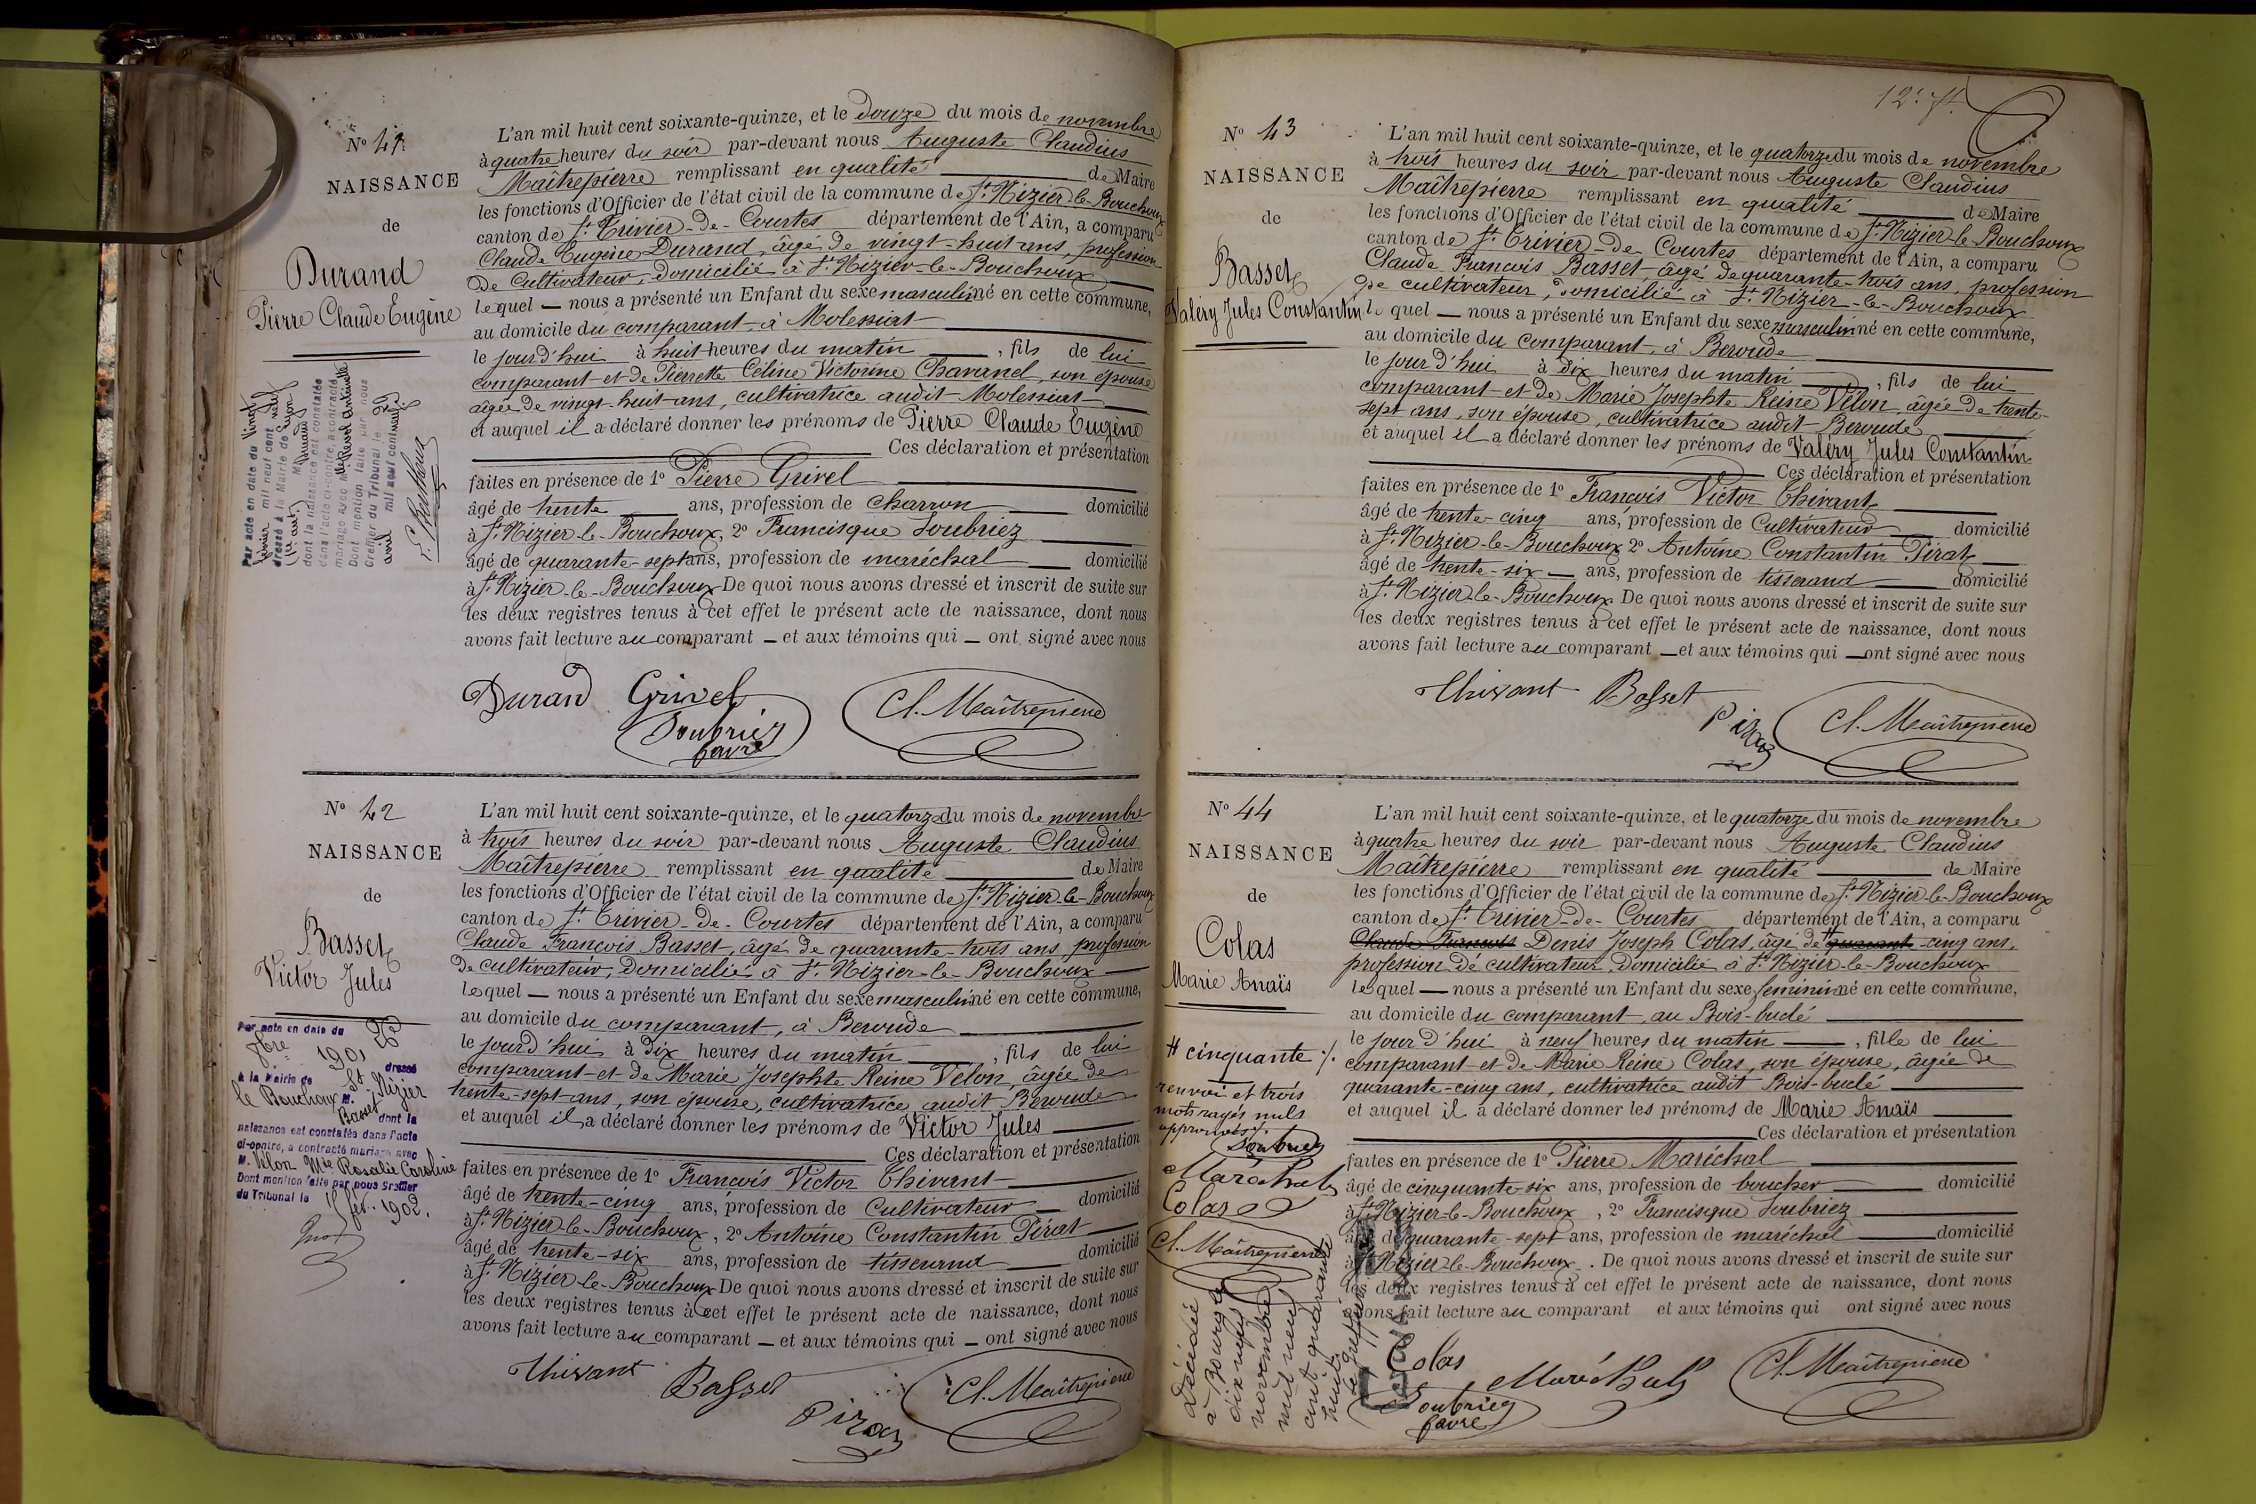 N° 41
NAISSANCE
de
Durand
Pierre Claude Eugène
L'an mil huit cent soixante-quinze, et le douze du mois de novembre
à quatre heures du soir par-devant nous Auguste Claudius
Maîtrepierre remplissant en qualité de Maire
les fonctions d'Officier de l'état civil de la commune de St Nizier-le-Bouchoux
canton de St Trivier-de-Courtes département de l'Ain, a comparu
Claude Eugène Durand, âgé de vingt-huit ans, profession
de Cultivateur, domicilié à St Nizier-le-Bouchoux
lequel — nous a présenté un Enfant du sexe masculin né en cette commune,
au domicile du comparant à Molessiat
le jour d'hui à huit heures du matin, fils de lui
comparant et de Pierrette Céline Victorine Chavanel, son épouse
âgée de vingt-huit ans, cultivatrice audit Molessiat
et auquel il a déclaré donner les prénoms de Pierre Claude Eugène
Ces déclaration et présentation
faites en présence de 1° Pierre Grivel
âgé de trente ans, profession de charron domicilié
à St Nizier-le-Bouchoux, 2° Francisque Soubriez
âgé de quarante-sept ans, profession de maréchal domicilié
à St Nizier-le-Bouchoux De quoi nous avons dressé et inscrit de suite sur
les deux registres tenus à cet effet le présent acte de naissance, dont nous
avons fait lecture au comparant — et aux témoins qui — ont signé avec nous
Durand Grivel Cl. Maîtrepierre
Soubriez
favre
Par acte en date du vingt
février mil neuf cent
dressé à la Mairie de Lyon
dont la naissance est constatée
dans l'acte ci-contre a contracté
mariage avec Mlle Rivol Antoinette
Dont mention faite par nous
Greffier du Tribunal le
avril mil neuf cent
N° 42
NAISSANCE
de
Basset
Victor Jules
L'an mil huit cent soixante-quinze, et le quatorze du mois de novembre
à trois heures du soir par-devant nous Auguste Claudius
Maîtrepierre remplissant en qualité de Maire
les fonctions d'Officier de l'état civil de la commune de St Nizier-le-Bouchoux
canton de St Trivier-de-Courtes département de l'Ain, a comparu
Claude François Basset, âgé de quarante-trois ans, profession
de cultivateur, domicilié à St Nizier-le-Bouchoux
lequel — nous a présenté un Enfant du sexe masculin né en cette commune,
au domicile du comparant, à Beroude
le jour d'hui à dix heures du matin, fils de lui
comparant et de Marie Josephte Reine Velon, âgée de
trente-sept ans, son épouse, cultivatrice audit Beroude
et auquel il a déclaré donner les prénoms de Victor Jules
Ces déclaration et présentation
faites en présence de 1° François Victor Thivant
âgé de trente-cinq ans, profession de Cultivateur domicilié
à St Nizier-le-Bouchoux, 2° Antoine Constantin Pirat
âgé de trente-six ans, profession de tisserand domicilié
à St Nizier-le-Bouchoux De quoi nous avons dressé et inscrit de suite sur
les deux registres tenus à cet effet le présent acte de naissance, dont nous
avons fait lecture au comparant — et aux témoins qui — ont signé avec nous
Thivant Basset Pirat Cl. Maîtrepierre
Par acte en date du 26
9bre 1901 dressé
à la Mairie de St Nizier
le Bouchoux M. Basset dont la
naissance est constatée dans l'acte
ci-contre, a contracté mariage avec
M. Velon Mie Rosalie Caroline
Dont mention faite par nous Greffier
du Tribunal le fév. 1902.
12e ft
N° 43
NAISSANCE
de
Basset
Valéry Jules Constantin
L'an mil huit cent soixante-quinze, et le quatorze du mois de novembre
à trois heures du soir par-devant nous Auguste Claudius
Maîtrepierre remplissant en qualité de Maire
les fonctions d'Officier de l'état civil de la commune de St Nizier-le-Bouchoux
canton de St Trivier-de-Courtes département de l'Ain, a comparu
Claude François Basset âgé de quarante-trois ans, profession
de cultivateur, domicilié à St Nizier-le-Bouchoux
lequel — nous a présenté un Enfant du sexe masculin né en cette commune,
au domicile du comparant, à Beroude
le jour d'hui à dix heures du matin, fils de lui
comparant et de Marie Josephte Reine Velon, âgée de trente-
sept ans, son épouse, cultivatrice audit Beroude
et auquel il a déclaré donner les prénoms de Valéry Jules Constantin
Ces déclaration et présentation
faites en présence de 1° François Victor Thivant
âgé de trente-cinq ans, profession de Cultivateur domicilié
à St Nizier-le-Bouchoux 2° Antoine Constantin Pirat
âgé de trente-six — ans, profession de tisserand domicilié
à St Nizier-le-Bouchoux De quoi nous avons dressé et inscrit de suite sur
les deux registres tenus à cet effet le présent acte de naissance, dont nous
avons fait lecture au comparant — et aux témoins qui — ont signé avec nous
Thivant Basset Pirat Cl. Maîtrepierre
N° 44
NAISSANCE
de
Colas
Marie Anaïs
L'an mil huit cent soixante-quinze, et le quatorze du mois de novembre
à quatre heures du soir par-devant nous Auguste Claudius
Maîtrepierre remplissant en qualité de Maire
les fonctions d'Officier de l'état civil de la commune de St Nizier-le-Bouchoux
canton de St Trivier-de-Courtes département de l'Ain, a comparu
Claude François Denis Joseph Colas, âgé de # quarante-cinq ans,
profession de cultivateur, domicilié à St Nizier-le-Bouchoux
lequel — nous a présenté un Enfant du sexe feminin né en cette commune,
au domicile du comparant, au Bois-buclé
le jour d'hui à neuf heures du matin, fille de lui
comparant et de Marie Reine Colas, son épouse, âgée de
quarante-cinq ans, cultivatrice audit Bois-buclé
et auquel il a déclaré donner les prénoms de Marie Anaïs
Ces déclaration et présentation
faites en présence de 1° Pierre Maréchal
âgé de cinquante-six ans, profession de boucher domicilié
à St Nizier-le-Bouchoux, 2° Francisque Soubriez
âgé de quarante-sept ans, profession de maréchal domicilié
à St Nizier-le-Bouchoux. De quoi nous avons dressé et inscrit de suite sur
les deux registres tenus à cet effet le présent acte de naissance, dont nous
avons fait lecture au comparant et aux témoins qui ont signé avec nous
Colas Maréchal Cl. Maîtrepierre
Soubriez
favre
# cinquante
renvoi et trois
mots rayés nuls
approuvés
Soubriez
Maréchal
Colas
Cl. Maîtrepierre
Décédée
à Bourg le
dix neuf
novembre
mil neuf
cent quarante
huit
le greffier